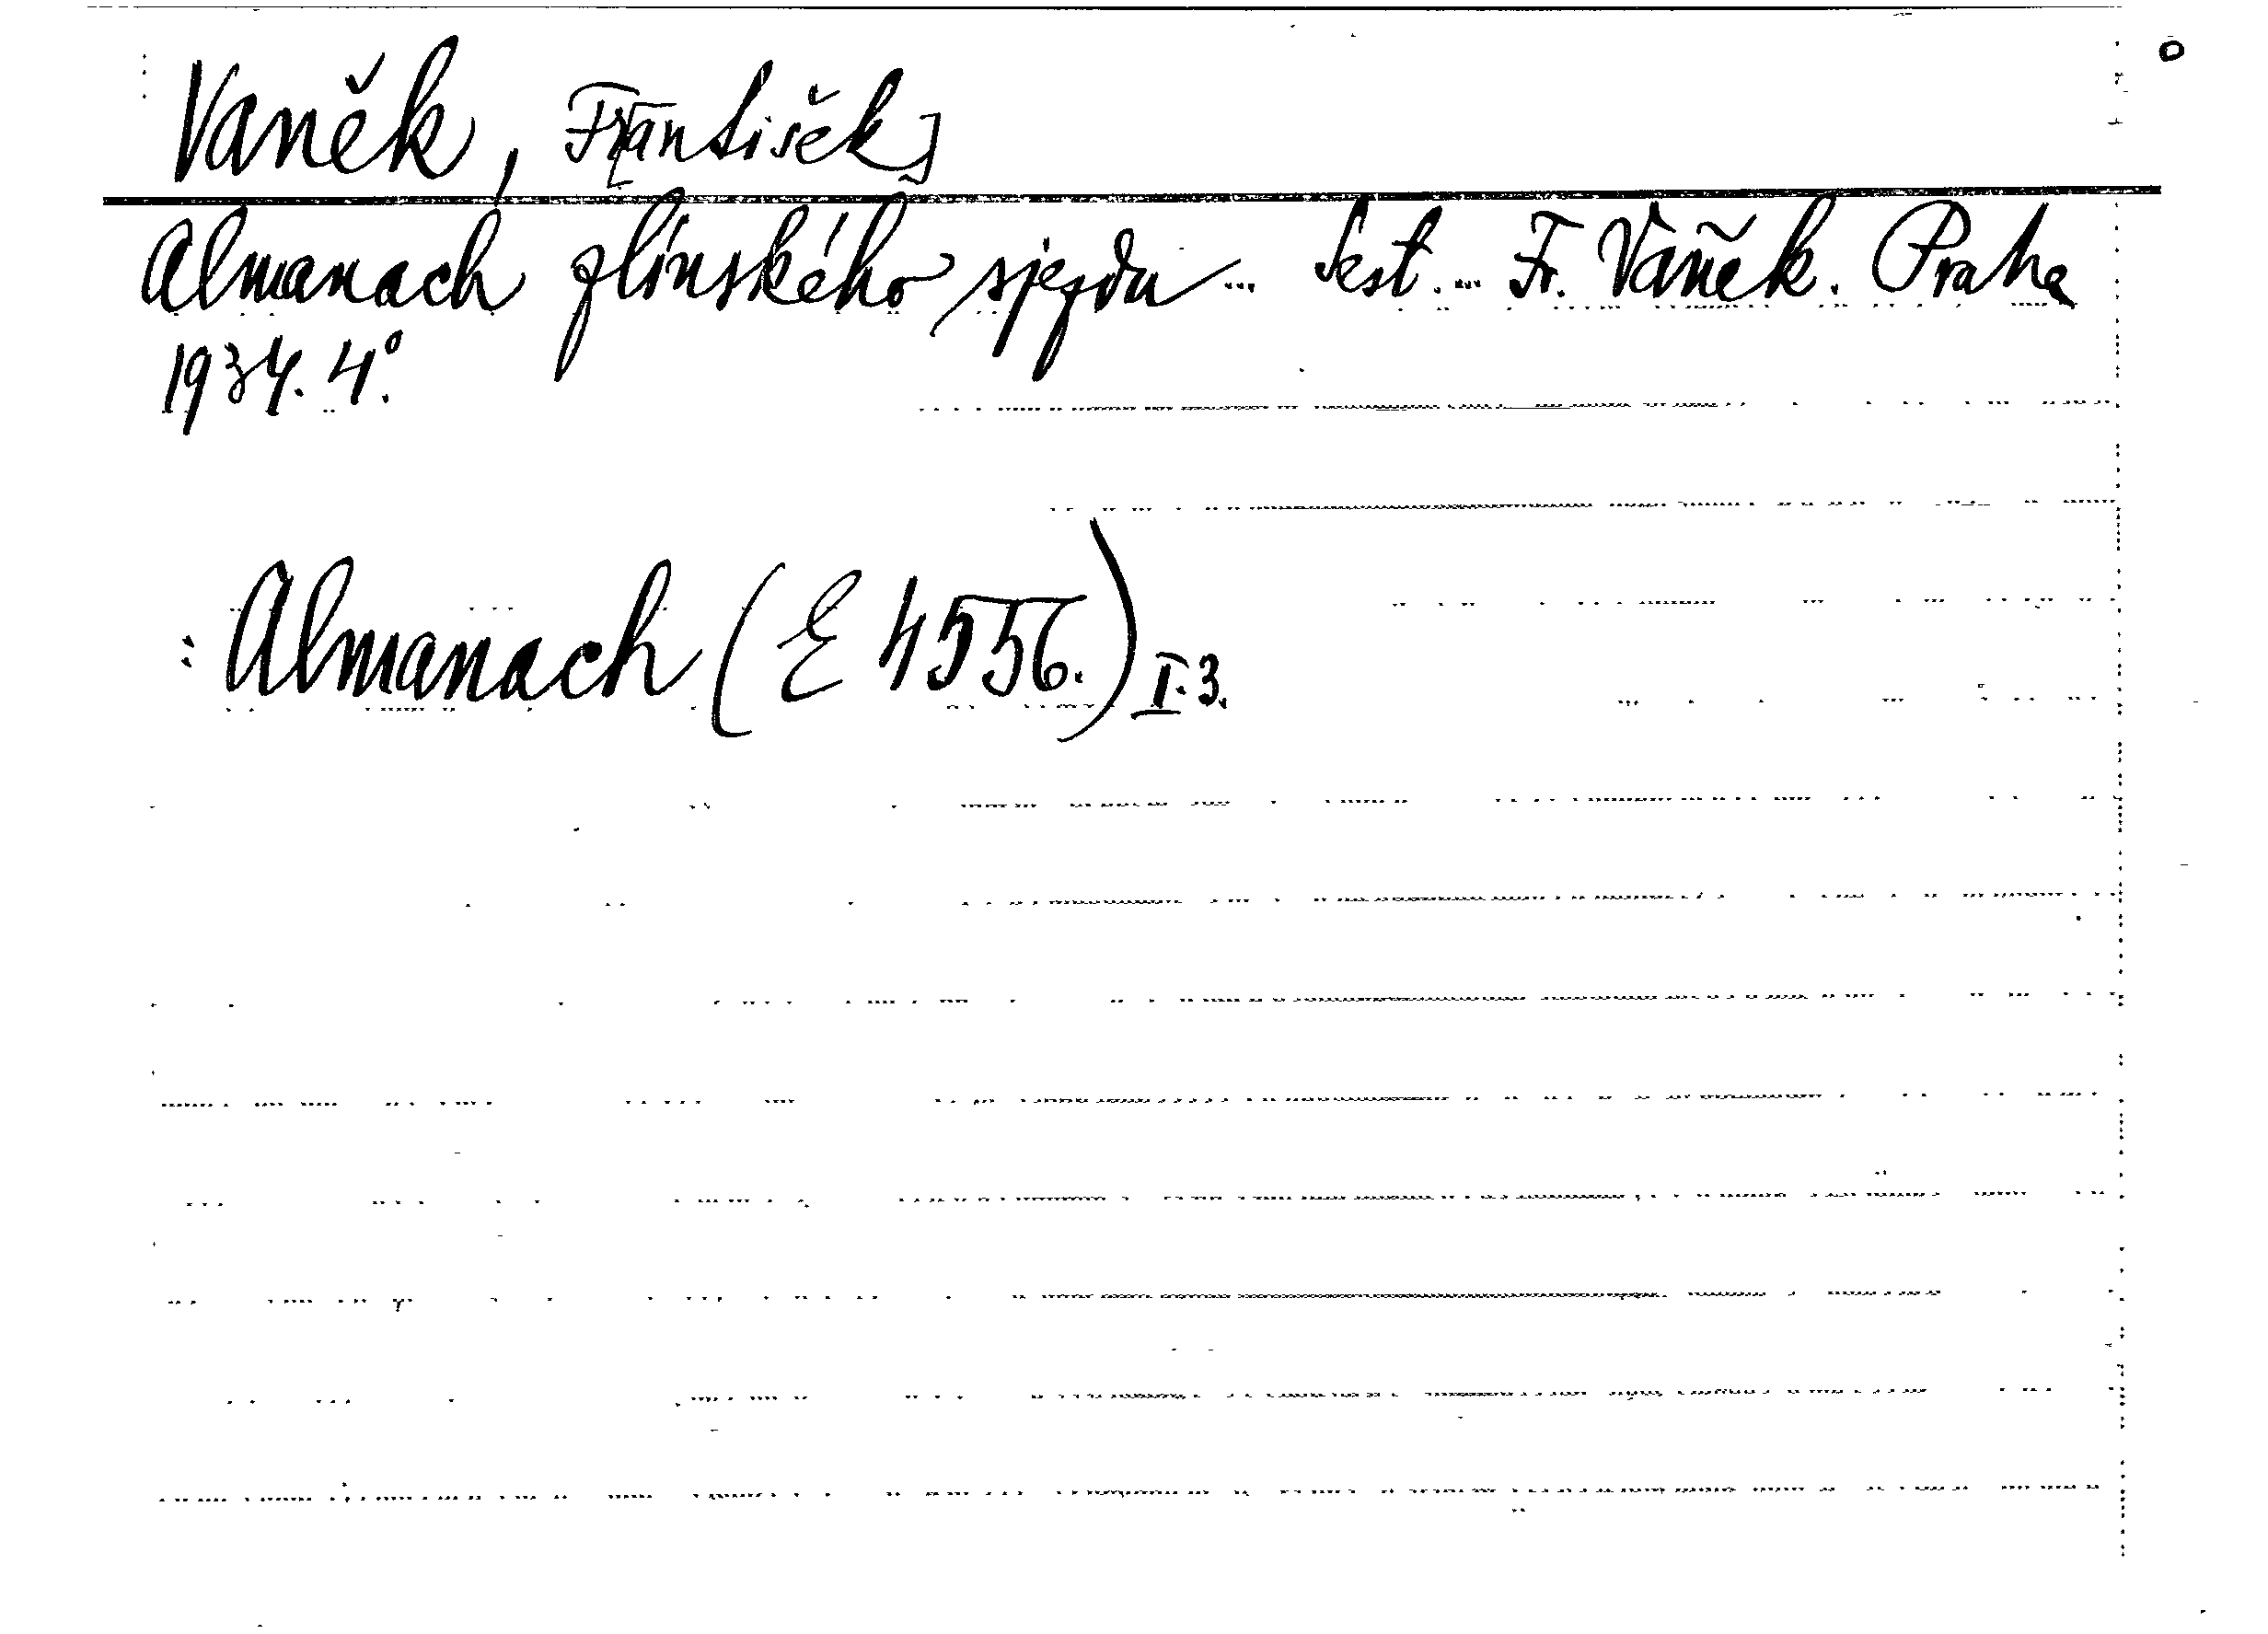 Vaněk, Fr[antišek]
Almanach zlínského sjezdu ... Sest. ... Fr. Vaněk. Praha
1934. 4°.
: Almanach (E 4556.) I. 3.